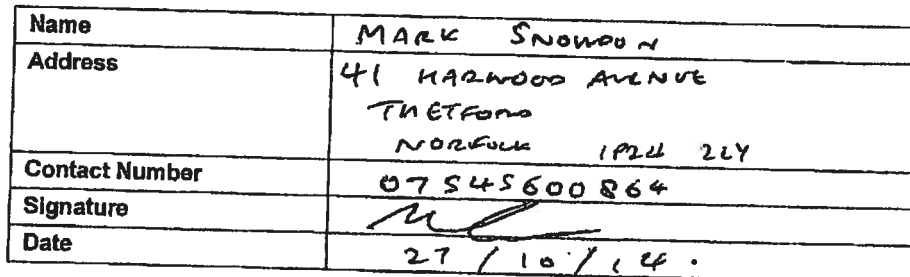 Name MARK SNOWDON
Address 41 HARWOOD AVENUE
THETFORD
NORFOLK IP24 2LY
Contact Number 07545600864
Signature
Date 27/10/14.